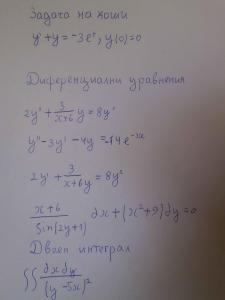 Задача на коши
y' + y = -3e^x, y(0) = 0
Диференциални уравнения
2y' + 3/(x+6) y = 8y³
y'' - 3y' - 4y = 14e^{-3x}
2y' + 3/(x+6) y = 8y²
(x+6)/Sin(2y+1) ∂x + (x²+9)∂y = 0
Двоен интеграл
∫∫ ∂x∂y/(y-5x)²